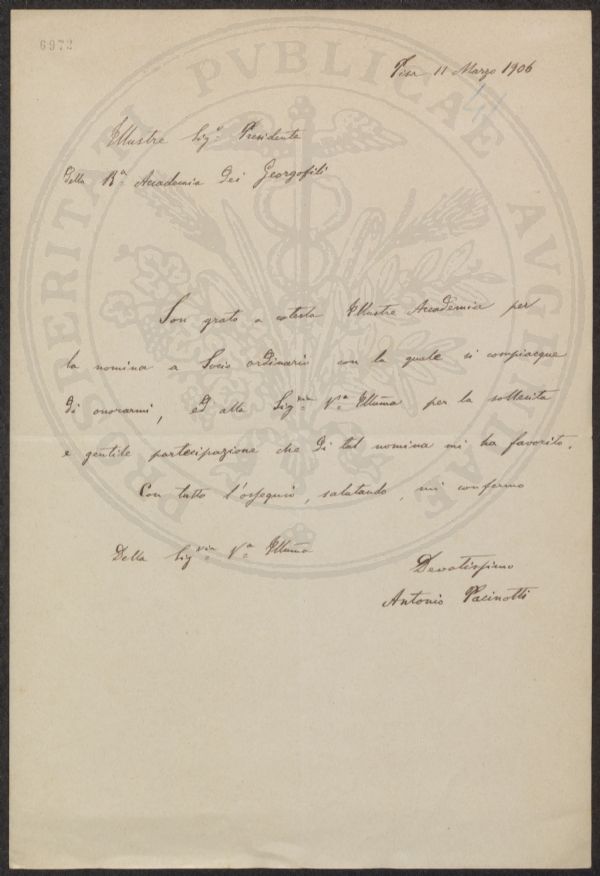 6972
Pisa 11 Marzo 1906
Illustre Sig.r Presidente
della R.a Accademia dei Georgofili
Son grato a cotesta Illustre Accademia per
la nomina a Socio ordinario con la quale si compiacque
di onorarmi, ed alla Sig.ria V.ra Illma per la sollecita
e gentile partecipazione che di tal nomina mi ha favorito.
Con tutto l'ossequio, salutando, mi confermo
Della Sig.ria V.a Illma
Devotissimo
Antonio Pacinotti
PROSPERITATI PVBLICAE AVGENDAE